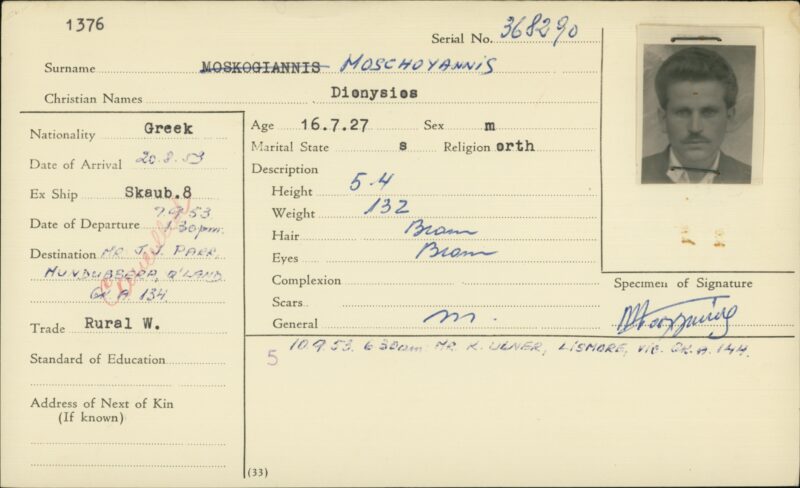 1376
Serial No. 368290
Surname MOSKOGIANNIS MOSCHOYANNIS
Christian Names Dionysios
Nationality Greek
Date of Arrival 20.8.53
Ex Ship Skaub.8
Date of Departure 7.9.53 1.30pm.
Destination MR J.J. PARR,
MUNDUBBERA, Q'LAND
GR A 134.
Cancelled
Trade Rural W.
Standard of Education
Address of Next of Kin
(If known)
Age 16.7.27 Sex m
Marital State s Religion orth
Description
Height 5.4
Weight 132
Hair Brown
Eyes Brown
Complexion
Scars
General m.
Specimen of Signature
5 10.9.53. 6.30am. MR K. ULNER, LISMORE, VIC. GR.A.144.
(33)